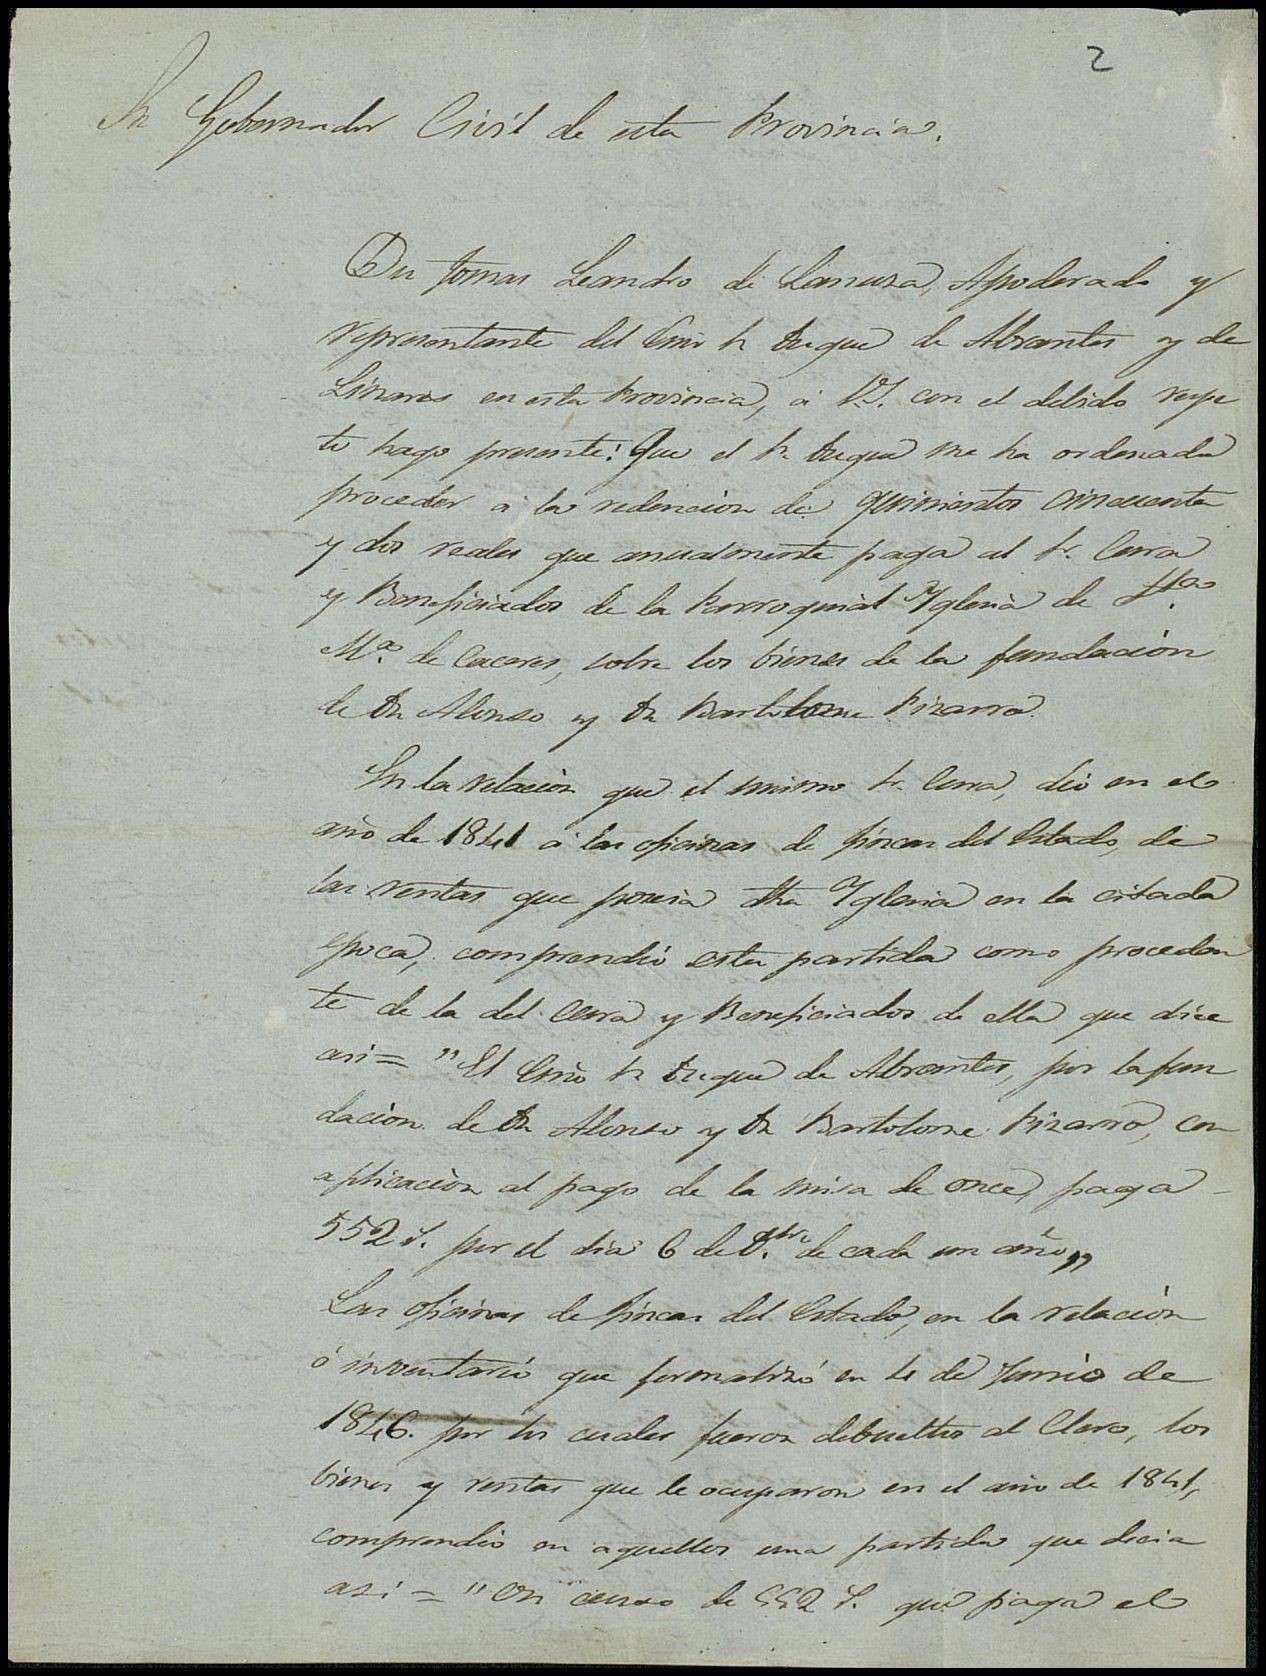 2
Sr Gobernador Civil de esta Provincia.
Dn Tomas Leandro de Lanuza, Apoderado y
representante del Exmo Sr Duque de Abrantes y de
Linares en esta Provincia, á V.S. con el debido respe
to hago presente: Que el Sr. Duque me ha ordenado
proceder á la redencion de quinientos cincuenta
y dos reales que anualmente paga al Sr. Cura
y Beneficiados de la Parroquial Yglesia de Sta.
Ma. de Caceres, sobre los bienes de la fundacion
de Dn Alonso y Dn Bartolome Pizarro.
En la relacion que el mismo Sr. Cura, dió en el
año de 1841 á las oficinas de fincas del Estado, de
las rentas que poseia dha Yglesia en la citada
epoca, comprendió esta partida como proceden
te de la del Cura y Beneficiados de ella que dice
asi = "El Exmo Sr Duque de Abrantes, por la fun
dacion de Dn Alonso y Dn Bartolome Pizarro, con
aplicacion al pago de la misa de once, paga
552 r. por el dia 6 de de cada un año"
Las oficinas de fincas del Estado, en la relacion
ó inventario que formalizó en 4 de Junio de
1846. por los cuales fueron debueltos al Clero, los
bienes y rentas que le ocuparon en el año de 1841,
comprendió en aquellos una partida que decia
asi = "Un censo de 552 r. que paga el